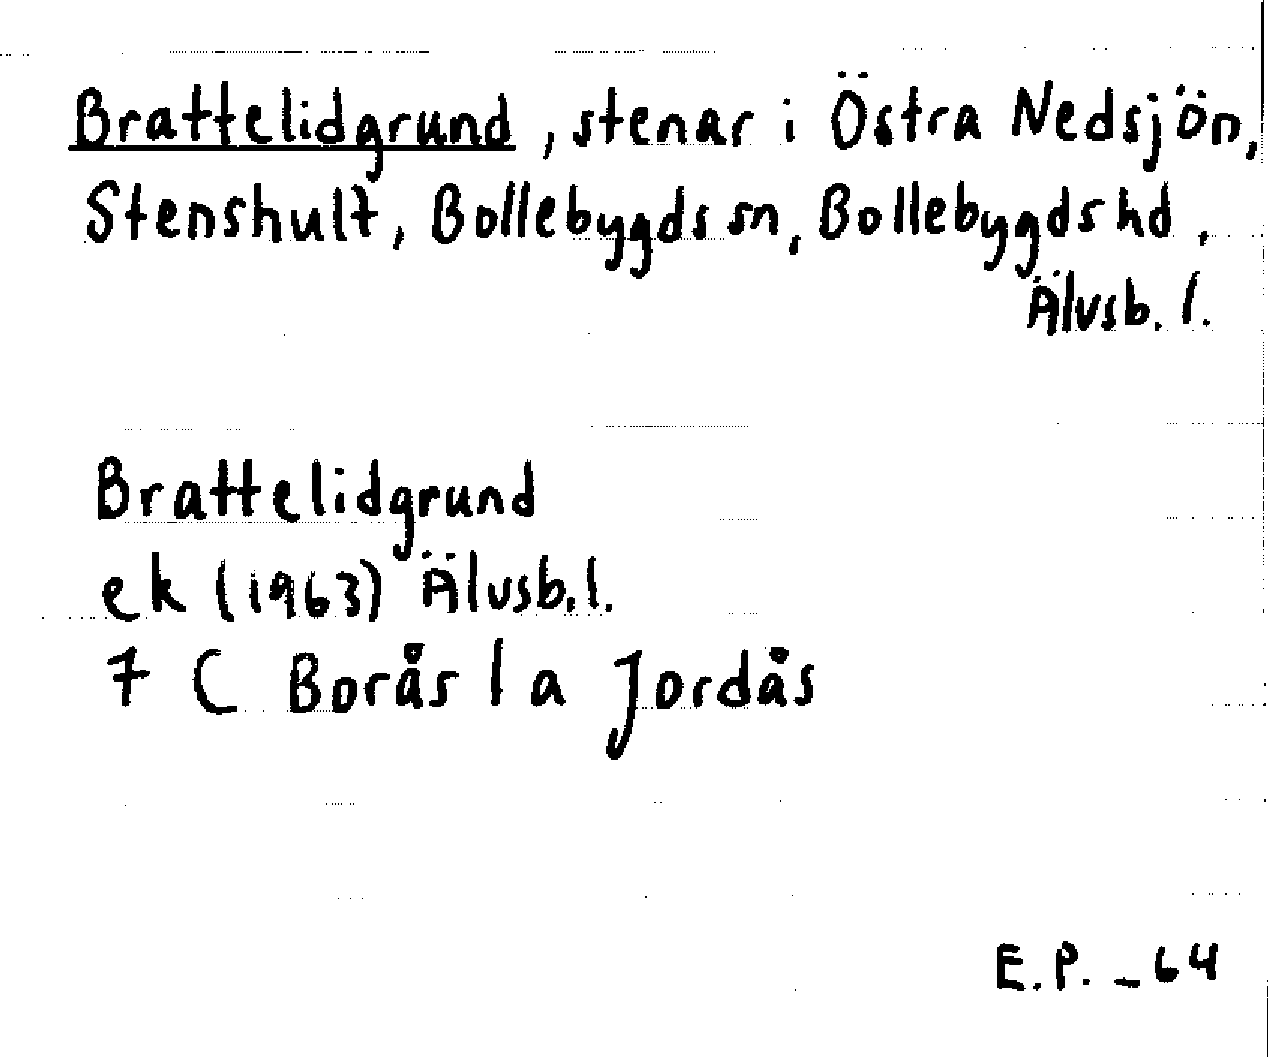 Brattelidgrund, stenar i Östra Nedsjön,
Stenshult, Bollebygds sn, Bollebygds hd,
Älvsb. l.
Brattelidgrund
ek (1963) Älvsb. l.
7 C Borås 1 a Jordås
E.P. - 64